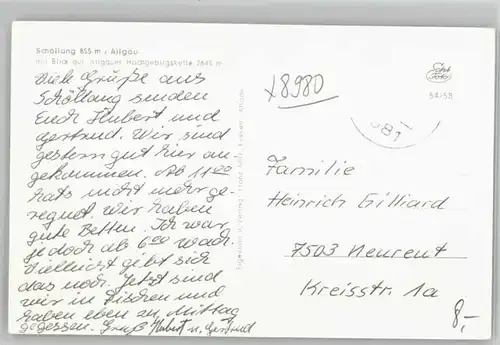 Schöllang 855 m, Allgäu
mit Blick auf Allgäuer Hochgebirgskette 2645 m
Viele Grüße aus
Schöllang senden
Euch Hubert und
Gertrud. Wir sind
gestern gut hier an-
gekommen. Ab 11 00
hats nicht mehr ge-
regnet. Wir haben
gute Betten. Ich war
jedoch ab 6 00 wach.
Vielleicht gibt sich
das noch. Jetzt sind
wir in Fischen und
haben eben zu Mittag
gegessen. Gruß Hubert u. Gertrud
Echt
Foto
54/58
x8980
Familie
Heinrich Gilliard
7503 Neureut
Kreisstr. 1a
8,-